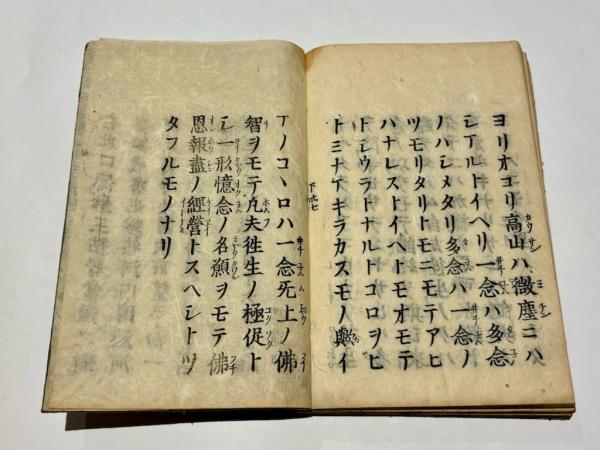 ヨリオコリ高山ハ微塵ニハ
シマルトイヘリ一念ハ多念
ノハシメタリ多念ハ一念ノ
ツモリタリトモニモテアヒ
ハナレストイヘトモオモテ
トシウラトナルトコロヲヒ
トミナマキラカスモノ歟イ
マノコヽロハ一念无上ノ佛
智ヲモテ凡夫徃生ノ極促ト
シ一形憶念ノ名願ヲモテ佛
恩報盡ノ經營トスヘシトツ
タフルモノナリ